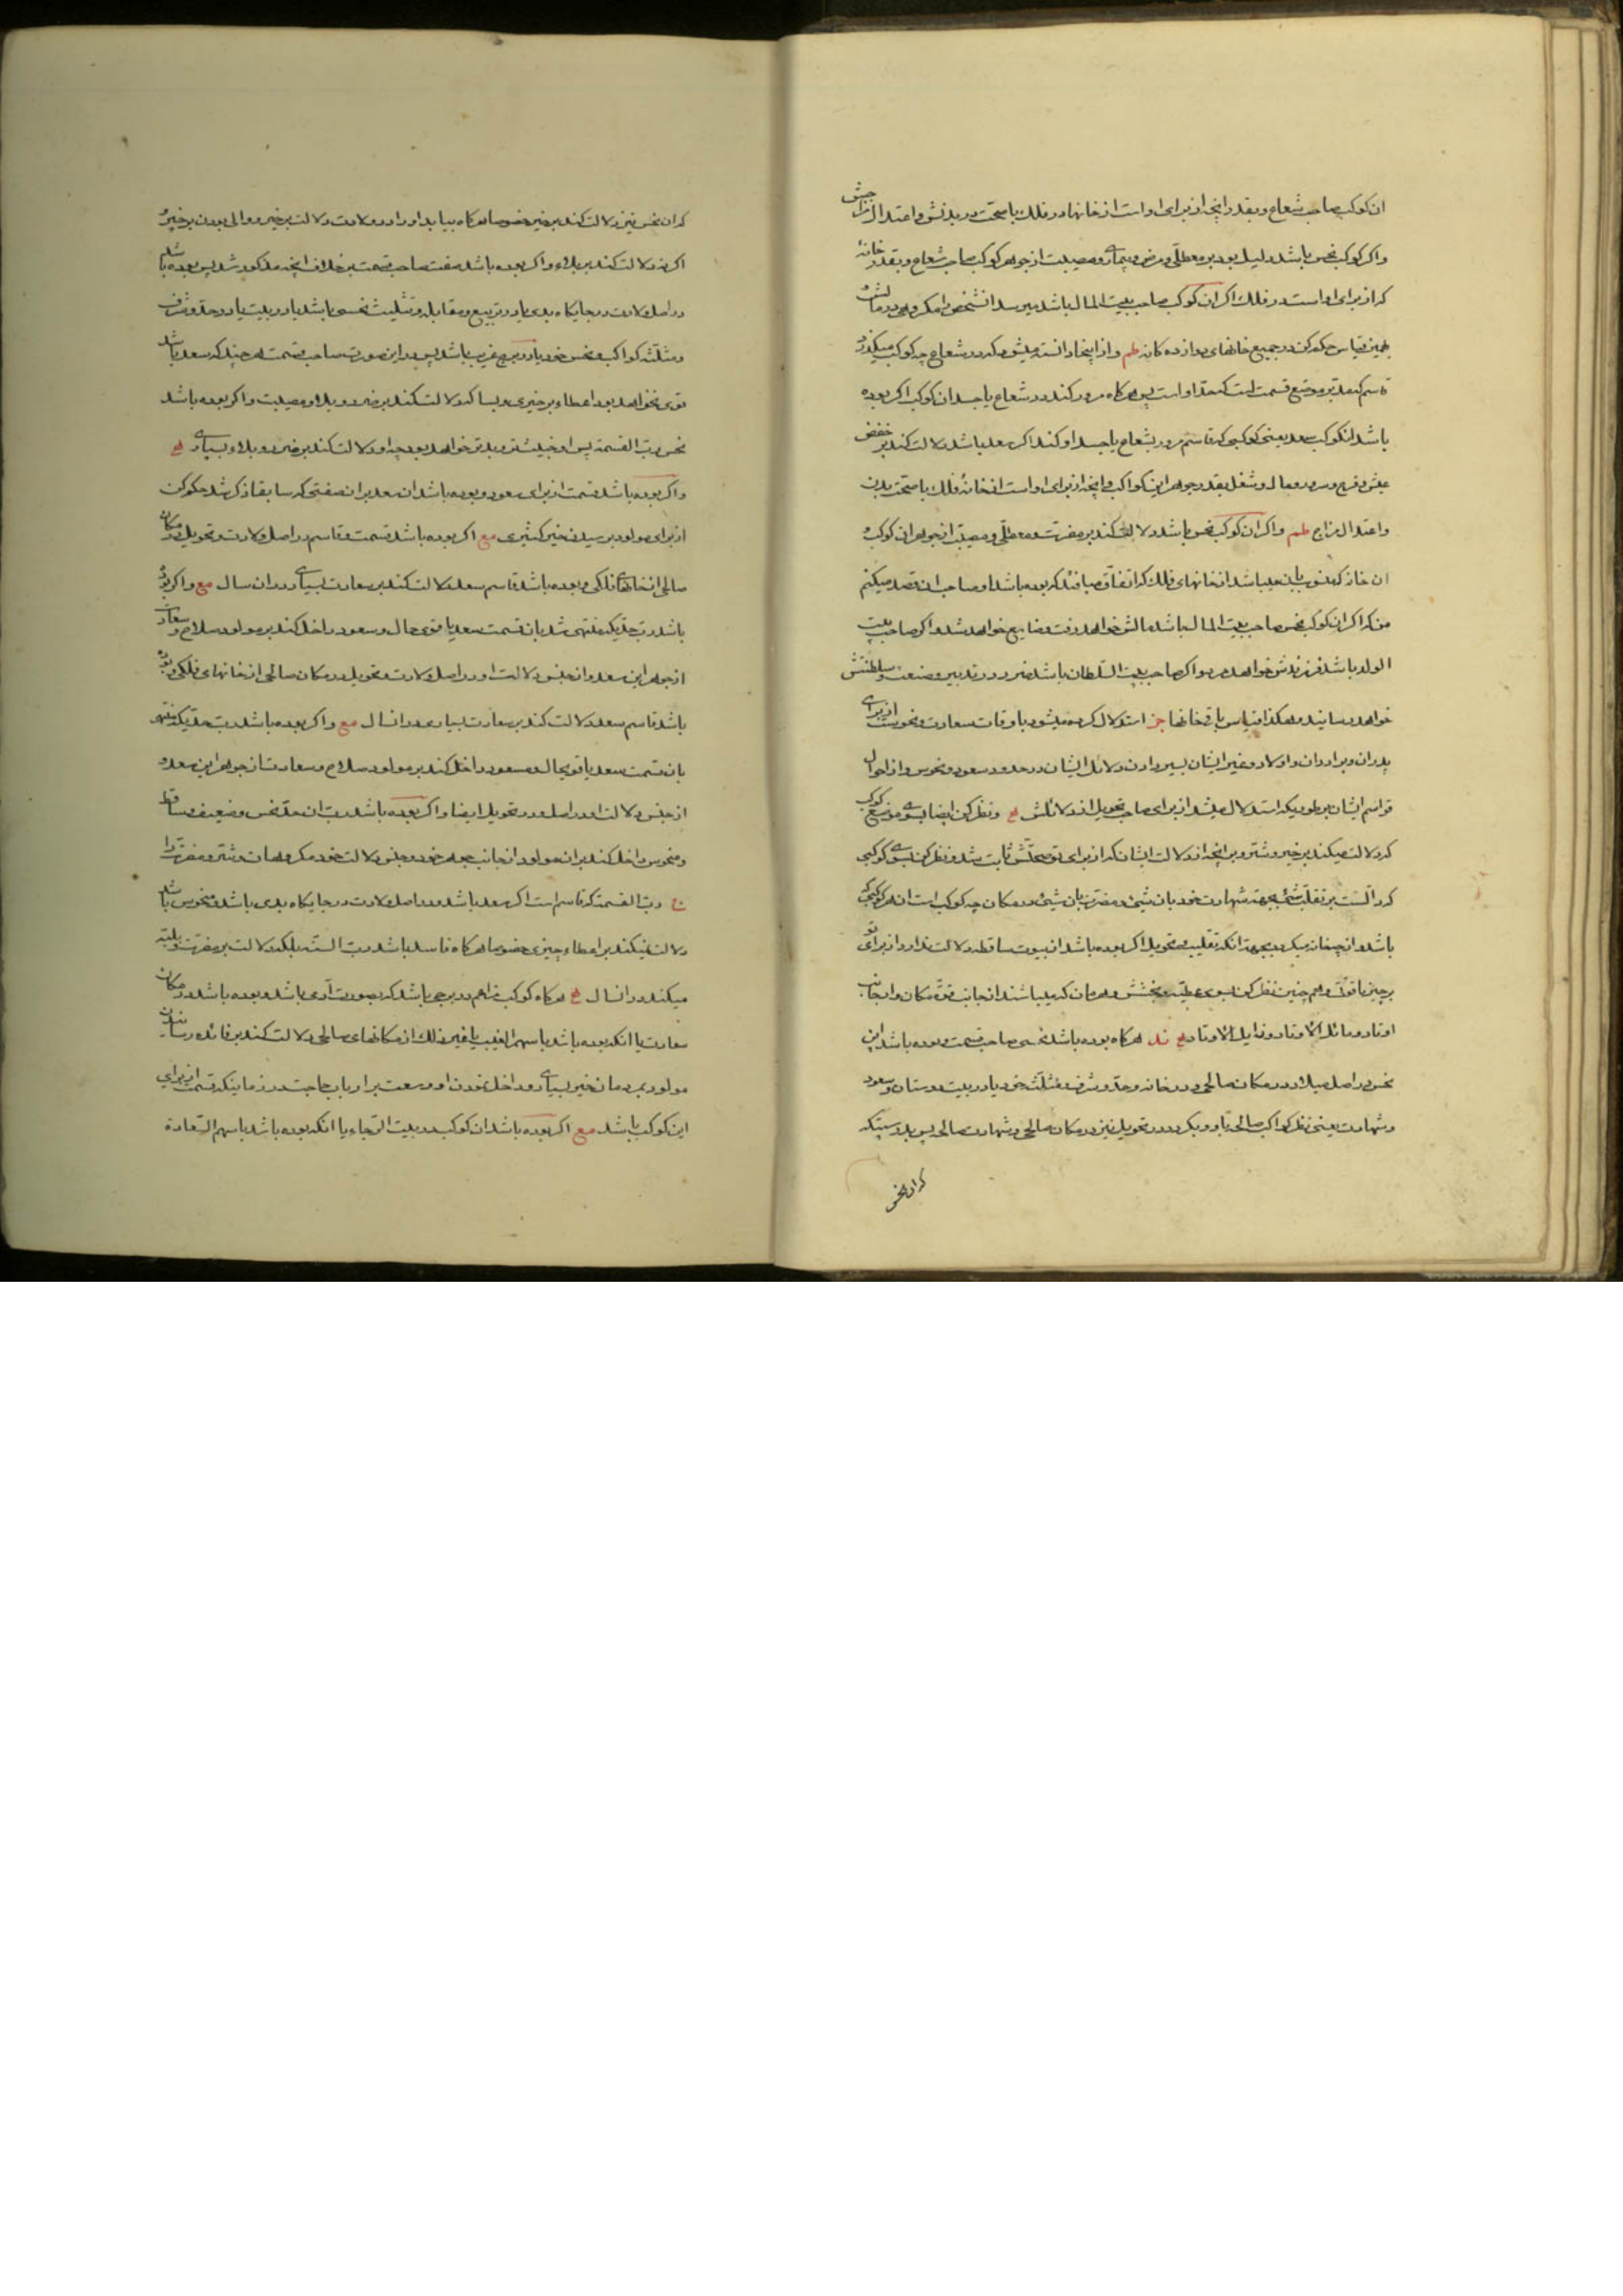 ان کوکب صاحب شعاع و بقدر انچه از برای او است از خانها در فلک با صحت در بدنش و اعتدال مزاجش
واکر کوکب نحس باشد دلیل بود بر معطلی و مرض و بیماری و مصیبت از جوهر کوکب صاحب شعاع و بقدر خانهٔ
که از برای او است در فلک اکر ان کوکب صاحب بیت المال باشد میرسد انشخص را مکروهی در مالش و
بهمین قیاس حکم کن در جمیع خانهای دوازده کانه و از اینجا دانسته میشود که در شعاع چه کوکب میکذرد
قاسم که مدبر موضع قسمت است که حد او است پس هرکاه مرور کند در شعاع یا جسد ان کوکب اکر بوده
باشد انکوکب سعد یعنی کوکبی که قاسم مرور بشعاع یا جسد او کند اکر سعد باشد دلالت کند بر خفض
عیش و فرح و سرور و مال و شغل بقدر جوهر این کواکب و انچه از برای او است از خانهٔ فلک با صحت بدن
واعتدال مزاج واکر ان کوکب نحس باشد دلالت کند بر مضرت و معطلی و مصیبت از جوهر ان کوکب و
ان خانه که منسوب بان باشد از خانهای فلک که اتفاق میافتد که بوده باشد او صاحب ان قصد میکنم
من که اکر ان کوکب نحس صاحب بیت المال باشد مالش خواهد رفت و ضایع خواهد شد و اکر صاحب بیت
الولد باشد فرزندش خواهد مرد و اکر صاحب بیت السلطان باشد ضرر در تدبیر و صنعت و سلطنتش
خواهد رسانید و هکذا قیاس باقی خانها استدلال کرده میشود باوقات سعادت و نحوست از برای
پدران و برادران و اولاد و غیر ایشان بسیر دادن دلائل ایشان در حدود سعود و نحوس و از احوال
قواسم ایشان بر طوریکه استدلال میشد از برای صاحب تحویل از دلائلش و نظر کن ایضا بسوی موضع کوکب
که دلالت میکند بر خیر و شر و بر انچه از دلالت ایشان که از برای تو محلش ثابت شد و نظر کن بسوی کوکبی
که دالست بر تقلب شیء بجهة شهادت خود بان شیء و مضرت بان شیء در مکان چه کوکب است از هر کوکبی که
باشد و از چه خانه میکردد بجهة انکه تقلیب و تحویل اکر بوده باشد از بیوت ساقطه دلالت ندارد از برای تو
بر چیز باقوتی و هم چنین نظر کن بسوی عطیه و بخشش و هرمان که میباشند از جانب قوة مکان و از جانب
اوتاد و مائل الاوتاد و زایل الاوتاد هرکاه بوده باشد نحسی صاحب قسمت و بوده باشد این
نحس در اصل میلاد در مکان صالحی و در خانه و حد و شرف و مثلث خود یا در بیت دوستان و سعود
و شهادت یعنی نظر کواکب صالحه باو و بکردد در تحویل نیز در مکان صالحی و شهادت صالحه پس بدرستیکه
که ان نحس
که ان نحس نیز دلالت کند بر خیر خصوصا هرکاه بیابد او را در ولادت دلالت بر خیر و والی بودن بر خیر و
اکر نه دلالت کند بر بلاء واکر بوده باشد صفت صاحب قسمت بر خلاف انچه مذکور شد پس بوده باشد
در اصل ولادت در جایکاه بدی یا در تربیع و مقابله و تثلیث نحسی باشد یا در بیت یا در حد و شرف
و مثلثه کواکب نحس خود یا در برج غریب باشد پس در این صورت صاحب قسمت هر چند که سعد باشد
قوی نخواهد بود اعطاء بر خیری و بسا که دلالت کند بر ضرر و بلا و مصیبت و اکر بوده باشد
نحس رب القسمة پس او خبیث تر و بدتر خواهد بود چه او دلالت کند بر ضرر و بلاء بسیاری
واکر بوده باشد قسمت از برای سعود و بوده باشد ان سعد بر ان صفتی که سابقا ذکر شد حکم کن
از برای مولود بر رسیدن خیر کثیری مع اکر بوده باشد قسمت و قاسم در اصل ولادت و تحویل در مکان
صالحی از خانهای فلکی و بوده باشد قاسم سعد دلالت کند بر سعادت بسیاری در ان سال مع واکر بوده
باشد رب حدیکه منتهی شد بان قسمت سعد یا قوی حال و مسعود داخل کند بر مولود صلاح و سعادت
از جوهر این سعد و از جنس دلالت او در اصل ولادت و تحویل در مکان صالحی از خانهای فلکی و بوده
باشد قاسم سعد دلالت کند بر سعادت بسیاری در انسال مع واکر بوده باشد رب حدیکه منتهی
بان قسمت سعد یا قوی حال و مسعود داخل کند بر مولود صلاح و سعادت از جوهر این سعد و
از جنس دلالت او در اصل و در تحویل ایضا واکر بوده باشد رب ان حد نحس و ضعیف و ساقط
و منحوس داخل کند بر ان مولود از جانب جوهر خود و جنس دلالت خود مکروهات و شر و مضرت را
رب القسمة که قاسم است اکر سعد باشد و در اصل ولادت در جایکاه بدی باشد و منحوس باشد
دلالت نمیکند بر اعطاء چیزی خصوصا هرکاه فاسد باشد رب السنه بلکه دلالت بر مضرت و بلیّه
میکند در انسال هرکاه کوکب در برجی باشد که بصورت آدمی باشد و بوده باشد در مکان
سعادت یا انکه بوده باشد با سهم الغیب یا غیر ذلک از مکانهای صالحی دلالت کند بر فائده رسانیدن
مولود بمردمان خیر بسیاری و داخل نمودن او وسعت بر ارباب حاجت در زمانیکه قسمت از برای
این کوکب باشد مع اکر بوده باشد ان کوکب در بیت الرجاء یا انکه بوده باشد با سهم السعادة